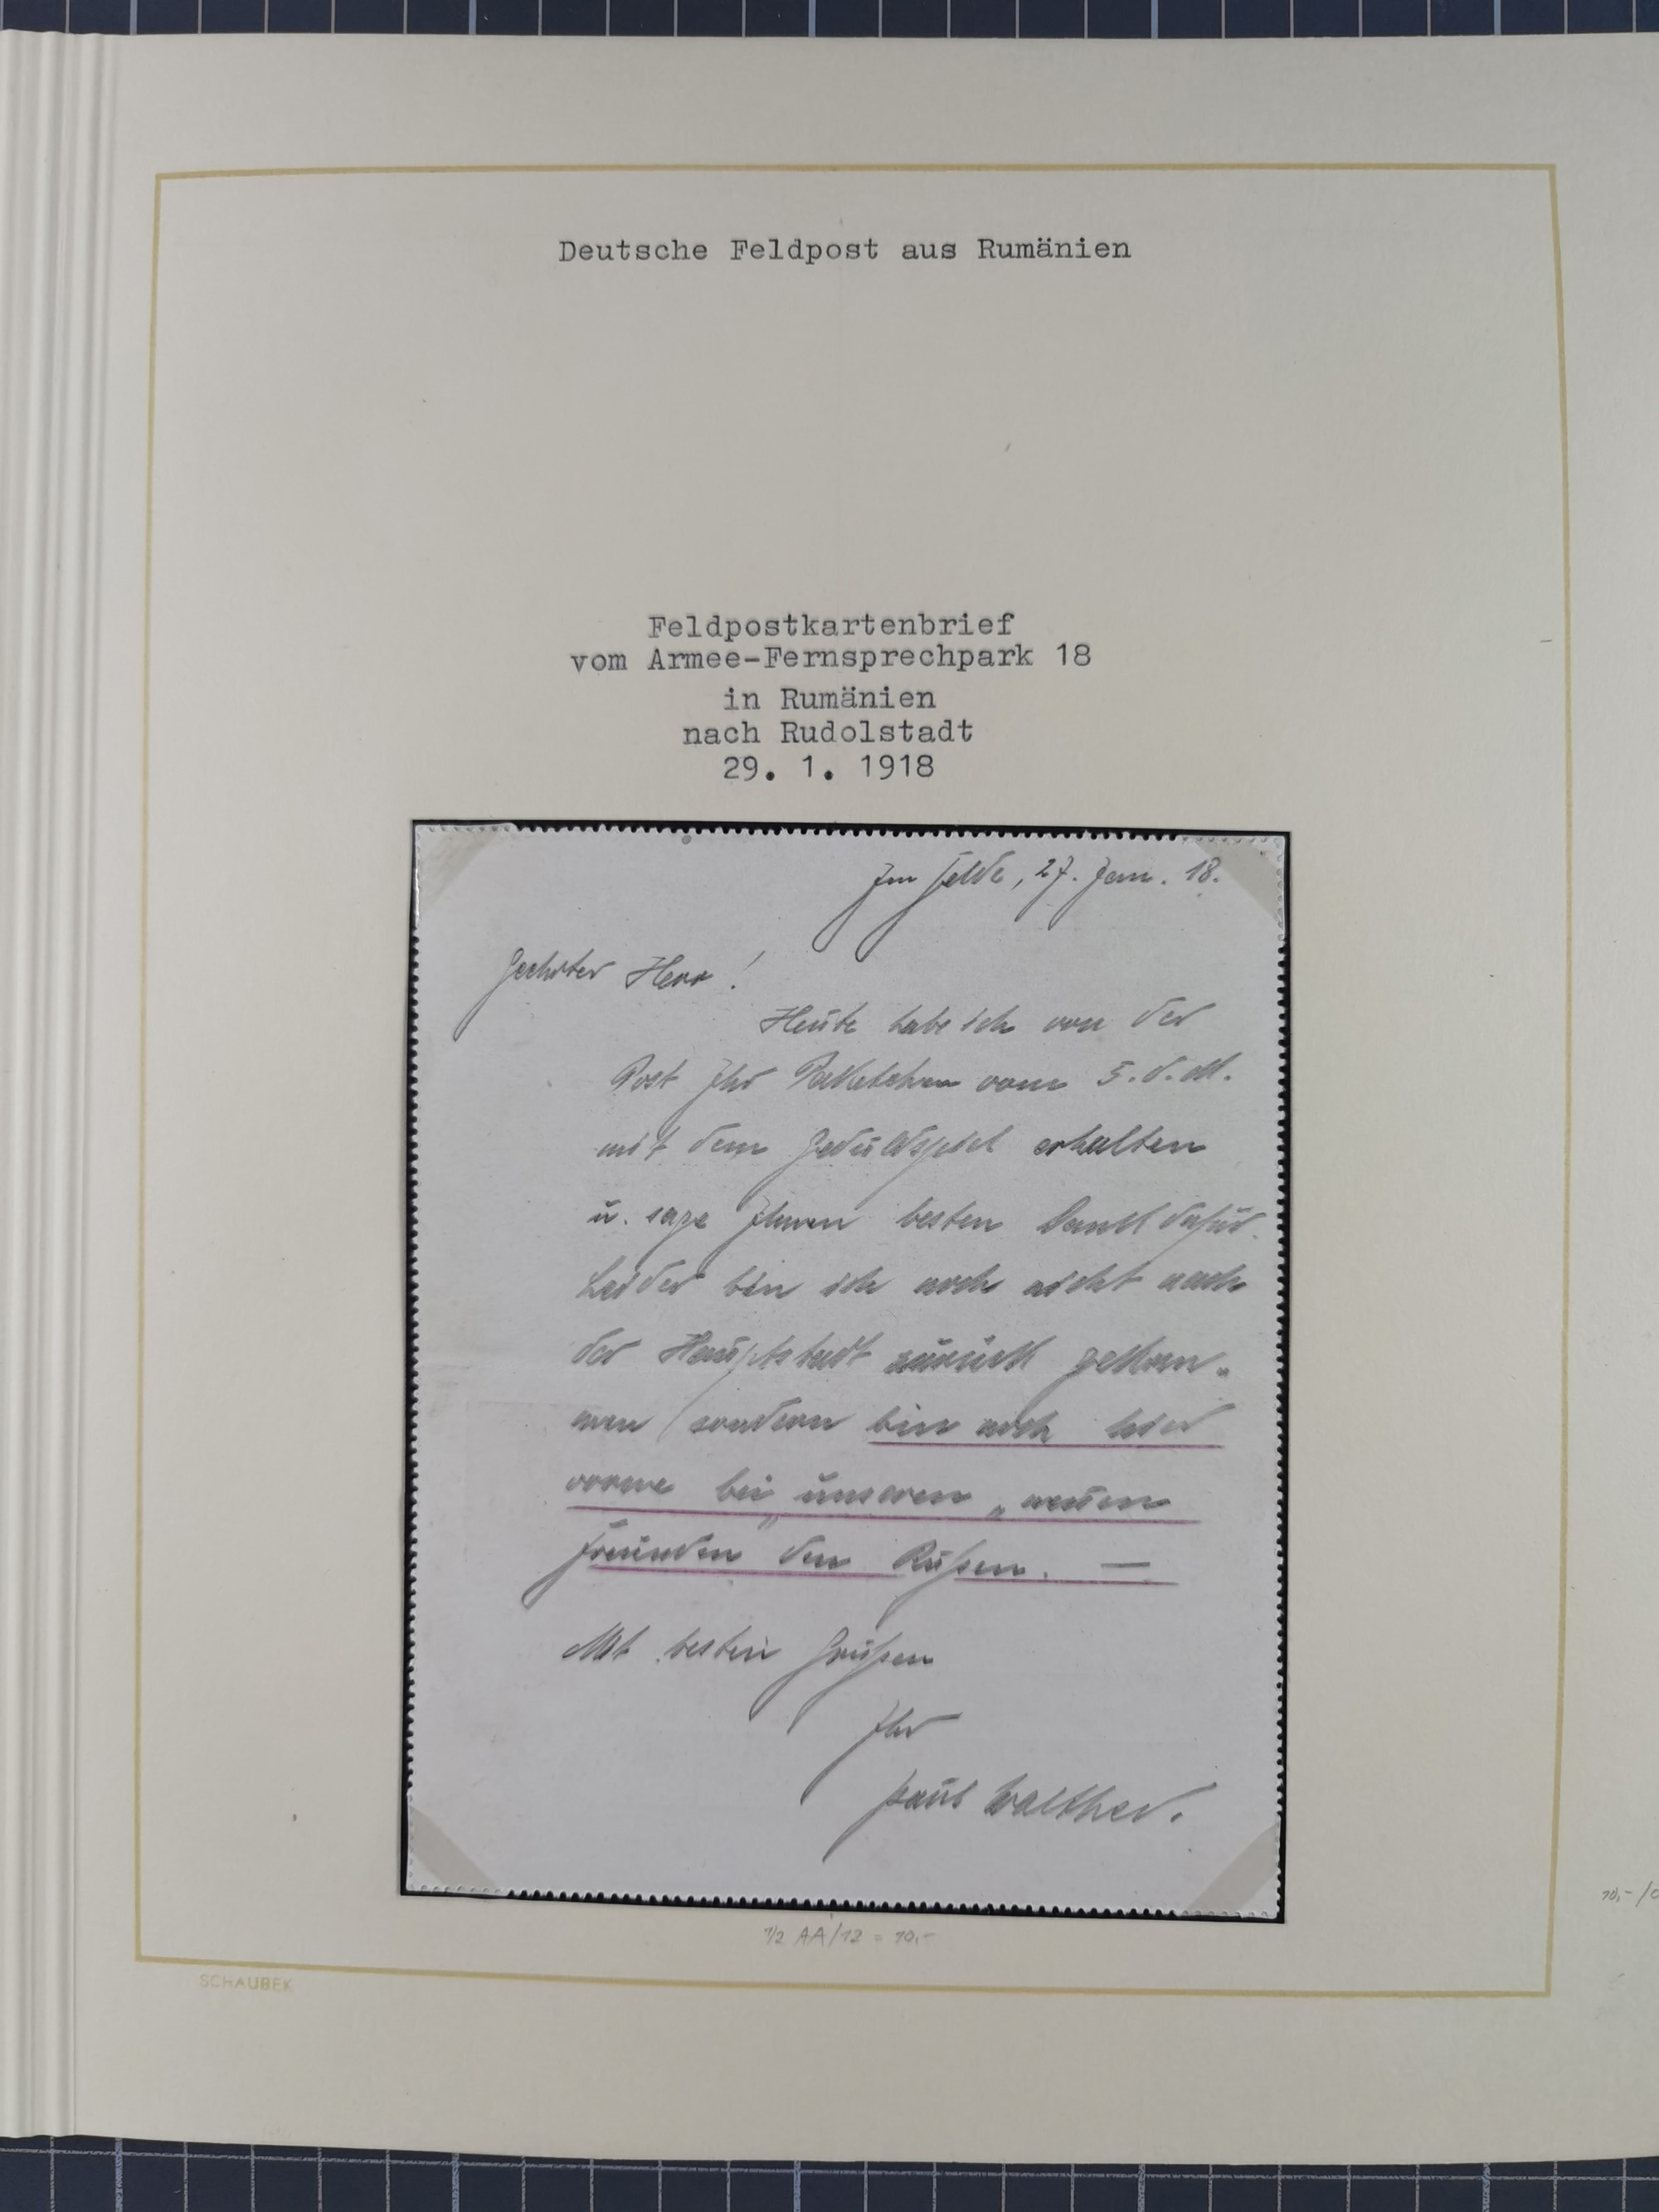 Deutsche Feldpost aus Rumänien
Feldpostkartenbrief
vom Armee-Fernsprechpark 18
in Rumänien
nach Rudolstadt
29. 1. 1918
Im Felde, 27. Jan. 18.
Geehrter Herr!
Heute habe ich von der
Post Ihr Paketchen vom 5. d. M.
mit dem Geduldspiel erhalten
u. sage Ihnen besten Dank dafür.
Leider bin ich noch nicht nach
der Hauptstadt zurück gekom„
men sondern bin noch hier
vorne bei unseren „neuen
Freunden" den Rußen. —
Mit besten Grüßen
Ihr
Paul Walther.
1/2 AA/12 = 10,-
10,-
SCHAUBEK